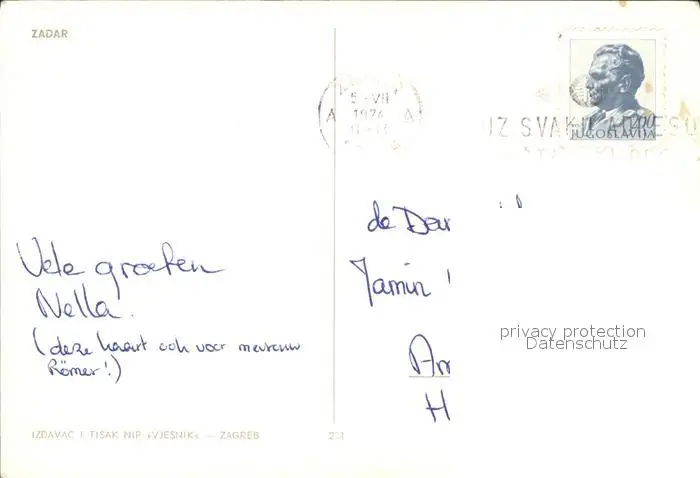 ZADAR
5-VII
1974
A A
UZ SVAKU ADRESU
JUGOSLAVIJA
Vele groeten
Nella.
(deze kaart ook voor mevrouw
Römer!)
de
Jamin
H
privacy protection
Datenschutz
IZDAVAČ I TISAK NIP »VJESNIK« — ZAGREB